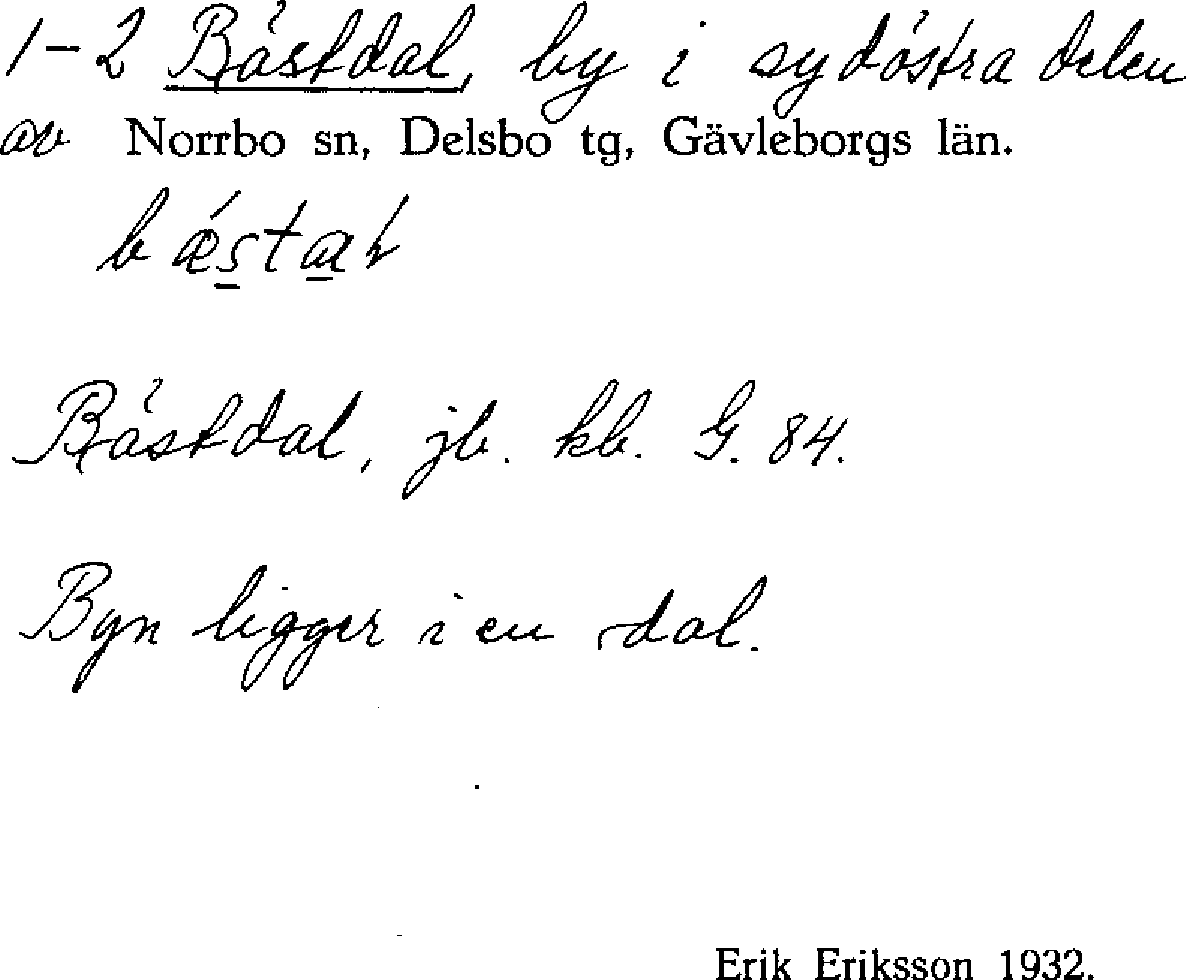 1-2 Bästdal, by i sydöstra delen
av Norrbo sn, Delsbo tg, Gävleborgs län.
Bästdal, jb. kb. G. 84.
Byn ligger i en dal.
Erik Eriksson 1932.